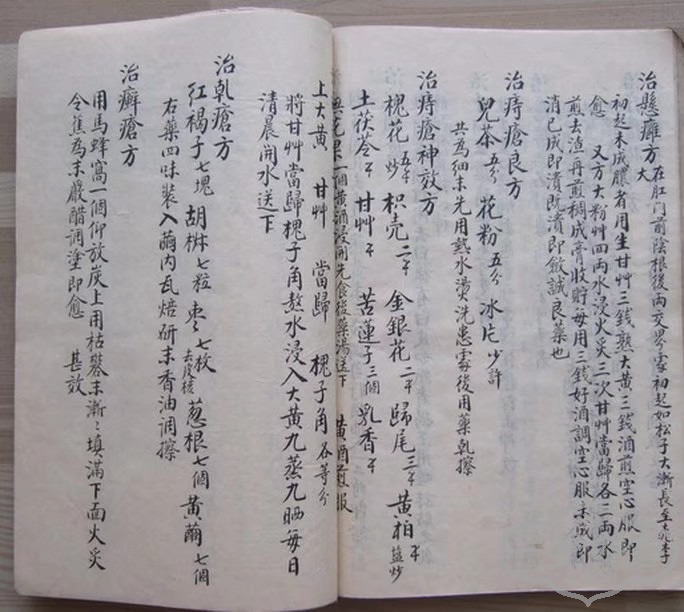 治懸癰方 在肛门前陰根後兩交界處初起如松子大漸長至如李
大
初起未成膿者用生甘艸三錢熟大黃三錢酒煎空心服即
愈 又方大粉艸四兩水浸火炙三次甘艸當歸各三兩水
煎去渣再煎稠成膏收貯每用三錢好酒調空心服未成即
消已成即潰既潰即斂誠良藥也
治痔瘡良方
兒茶五分 花粉五分 冰片少許
共為細末先用熱水燙洗患處後用藥乾擦
治痔瘡神效方
槐花炒 枳壳 金銀花 歸尾 黃柏 盐炒
土茯苓 甘艸 苦蓮子三個 乳香
無花果一個黃酒浸開先食後藥湯送下 黃酒煎服
上大黃 甘艸 當歸 槐子角各等分
將甘艸當歸槐子角熬水浸入大黃九蒸九晒每日
清晨開水送下
治乾瘡方
紅褐子七塊 胡椒七粒 枣七枚去皮核 葱根七個 黃繭七個
右藥四味裝入繭內瓦焙研末香油調擦
治癬瘡方
用馬蜂窩一個仰放炭上用枯礬末漸々填滿下面火炙
令焦為末嚴醋調塗即愈 甚效